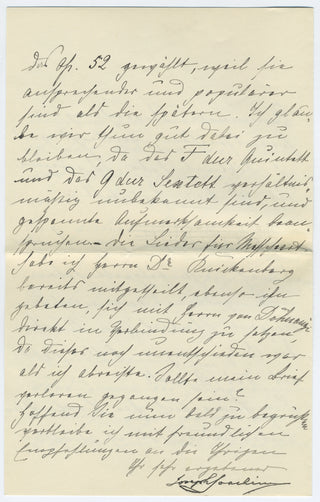 das Op. 52 gewählt, weil sie
ansprechender und populärer
sind als die spätern. Ich glau-
be wir thun gut dabei zu
bleiben, da das F dur Quintett
und das G dur Sextett verhältniß-
mäßig unbekannt sind, und
gespannte Aufmerksamkeit bean-
spruchen – die Lieder für
habe ich Herrn Dr
bereits mitgetheilt, ebenso ihn
gebeten, sich mit Herrn von
direkt in Verbindung zu setzen
da dieses noch unentschieden war
als ich abreiste. Sollte mein Brief
verloren gegangen sein?
Hoffend Sie nun bald zu begrüßen
verbleibe ich mit freundlichen
Empfehlungen an die Ihrigen
Ihr sehr ergebener
Joseph Joachim